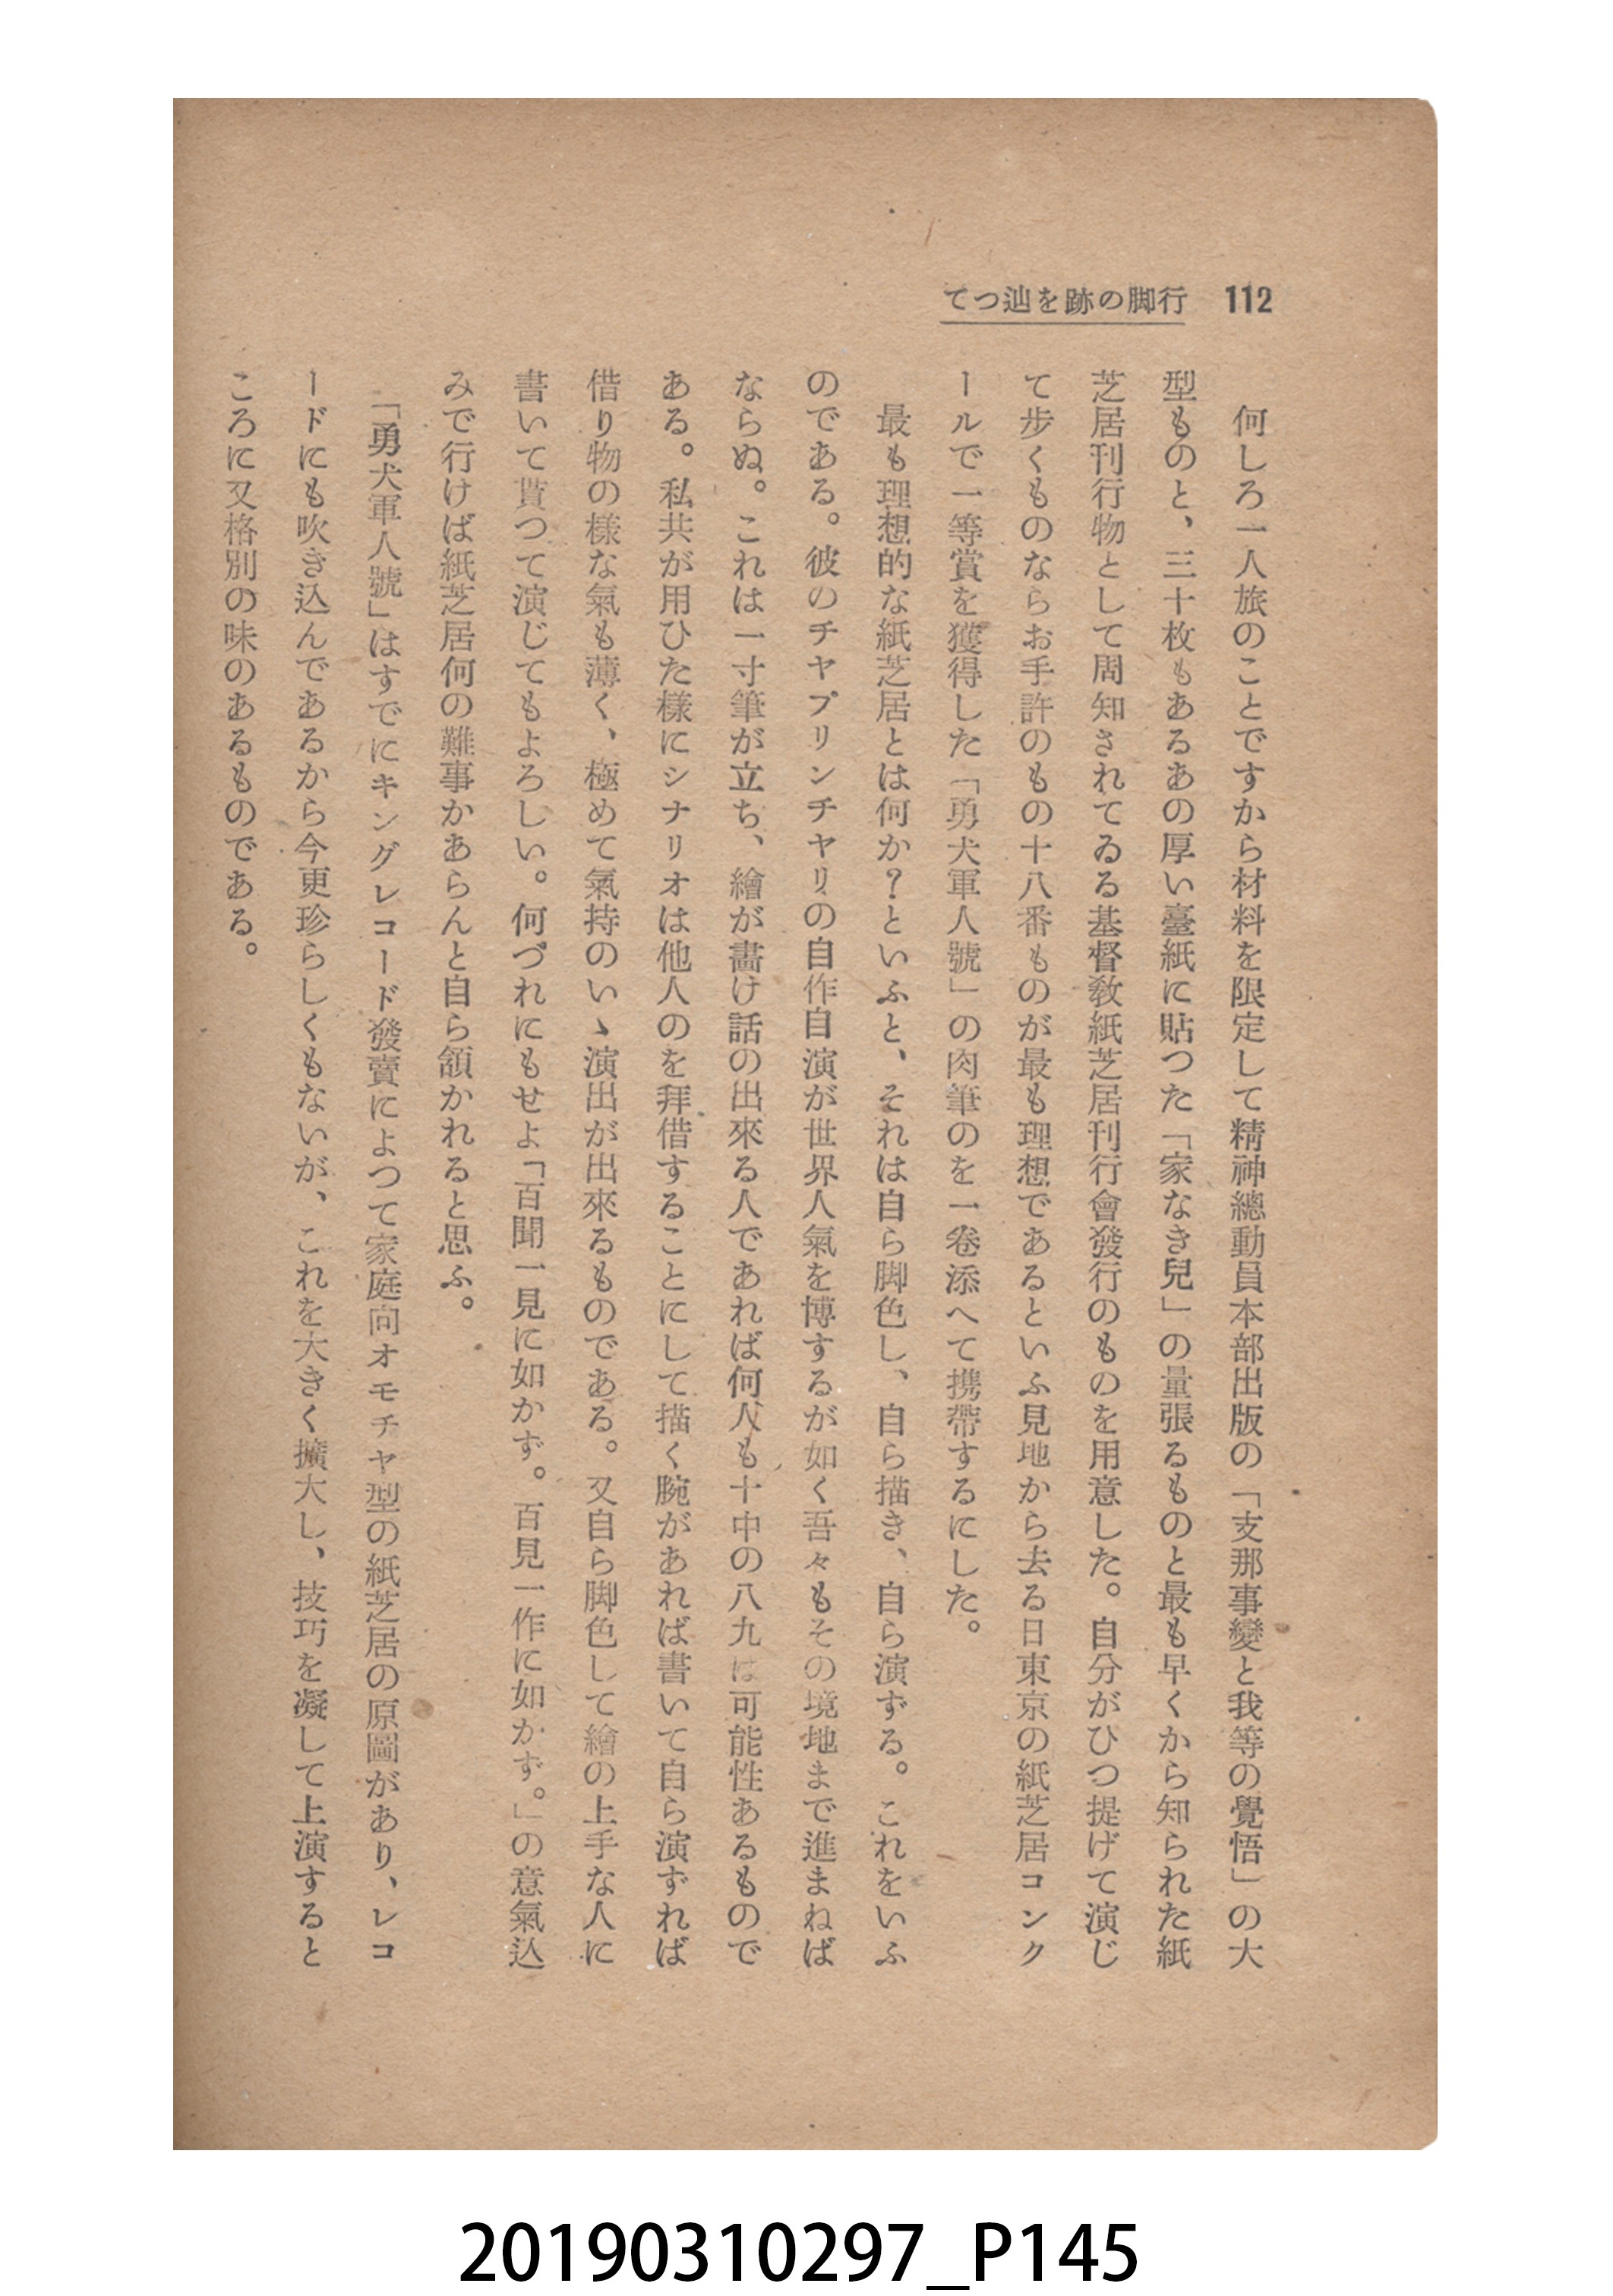 112 行脚の跡を辿つて
何しろ一人旅のことですから材料を限定して精神總動員本部出版の「支那事變と我等の覺悟」の大
型ものと、三十枚もあるあの厚い臺紙に貼つた「家なき兒」の量張るものと最も早くから知られた紙
芝居刊行物として周知されてゐる基督敎紙芝居刊行會發行のものを用意した。自分がひつ提げて演じ
て步くものならお手許のもの十八番ものが最も理想であるといふ見地から去る日東京の紙芝居コンク
ールで一等賞を獲得した「勇犬軍人號」の肉筆のを一卷添へて携帶するにした。
最も理想的な紙芝居とは何か？といふと、それは自ら脚色し、自ら描き、自ら演ずる。これをいふ
のである。彼のチヤプリンチヤリの自作自演が世界人氣を博するが如く吾々もその境地まで進まねば
ならぬ。これは一寸筆が立ち、繪が畵け話の出來る人であれば何人も十中の八九は可能性あるもので
ある。私共が用ひた樣にシナリオは他人のを拜借することにして描く腕があれば書いて自ら演ずれば
借り物の樣な氣も薄く、極めて氣持のいゝ演出が出來るものである。又自ら脚色して繪の上手な人に
書いて貰つて演じてもよろしい。何づれにもせよ「百聞一見に如かず。百見一作に如かず。」の意氣込
みで行けば紙芝居何の難事かあらんと自ら頷かれると思ふ。
「勇犬軍人號」はすでにキングレコード發賣によつて家庭向オモチヤ型の紙芝居の原圖があり、レコ
ードにも吹き込んであるから今更珍らしくもないが、これを大きく擴大し、技巧を凝して上演すると
ころに又格別の味のあるものである。
20190310297_P145